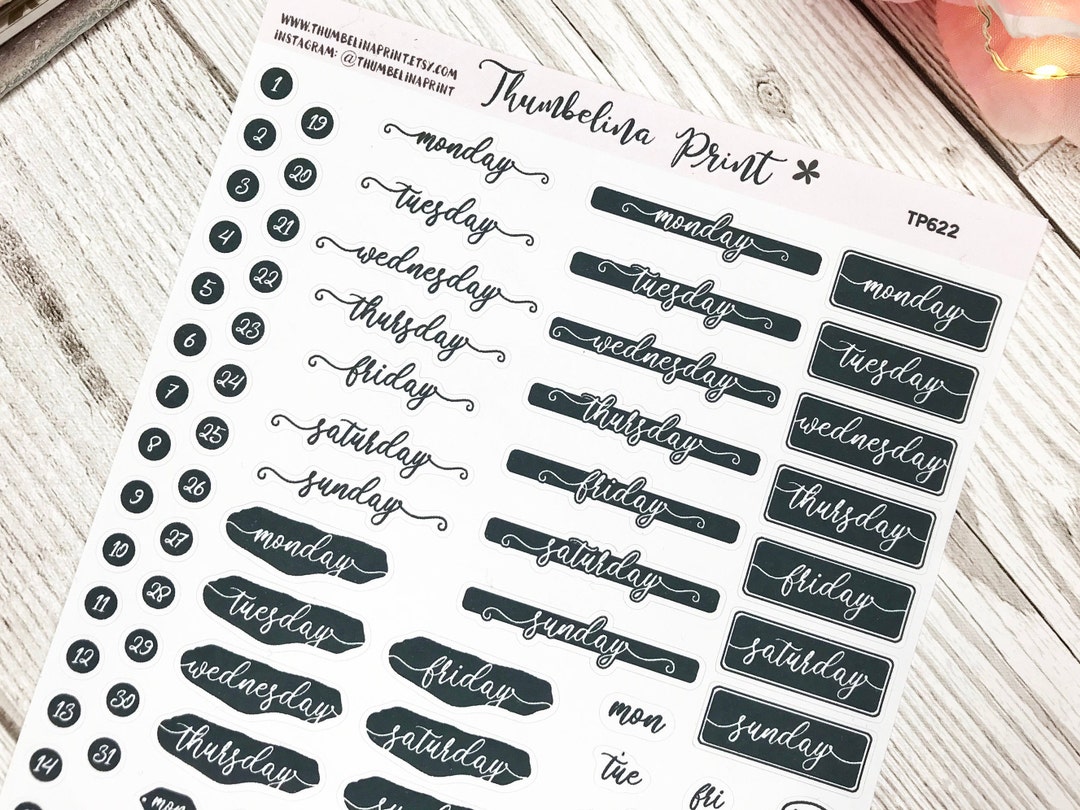 WWW.THUMBELINAPRINT.ETSY.COM
INSTAGRAM: @THUMBELINAPRINT
Thumbelina Print
TP622
1
2
3
4
5
6
7
8
9
10
11
12
13
14
19
20
21
22
23
24
25
26
27
28
29
30
31
monday
tuesday
wednesday
thursday
friday
saturday
sunday
monday
tuesday
wednesday
thursday
friday
saturday
sunday
monday
tuesday
wednesday
thursday
friday
saturday
sunday
monday
tuesday
wednesday
thursday
friday
saturday
mon
tue
fri